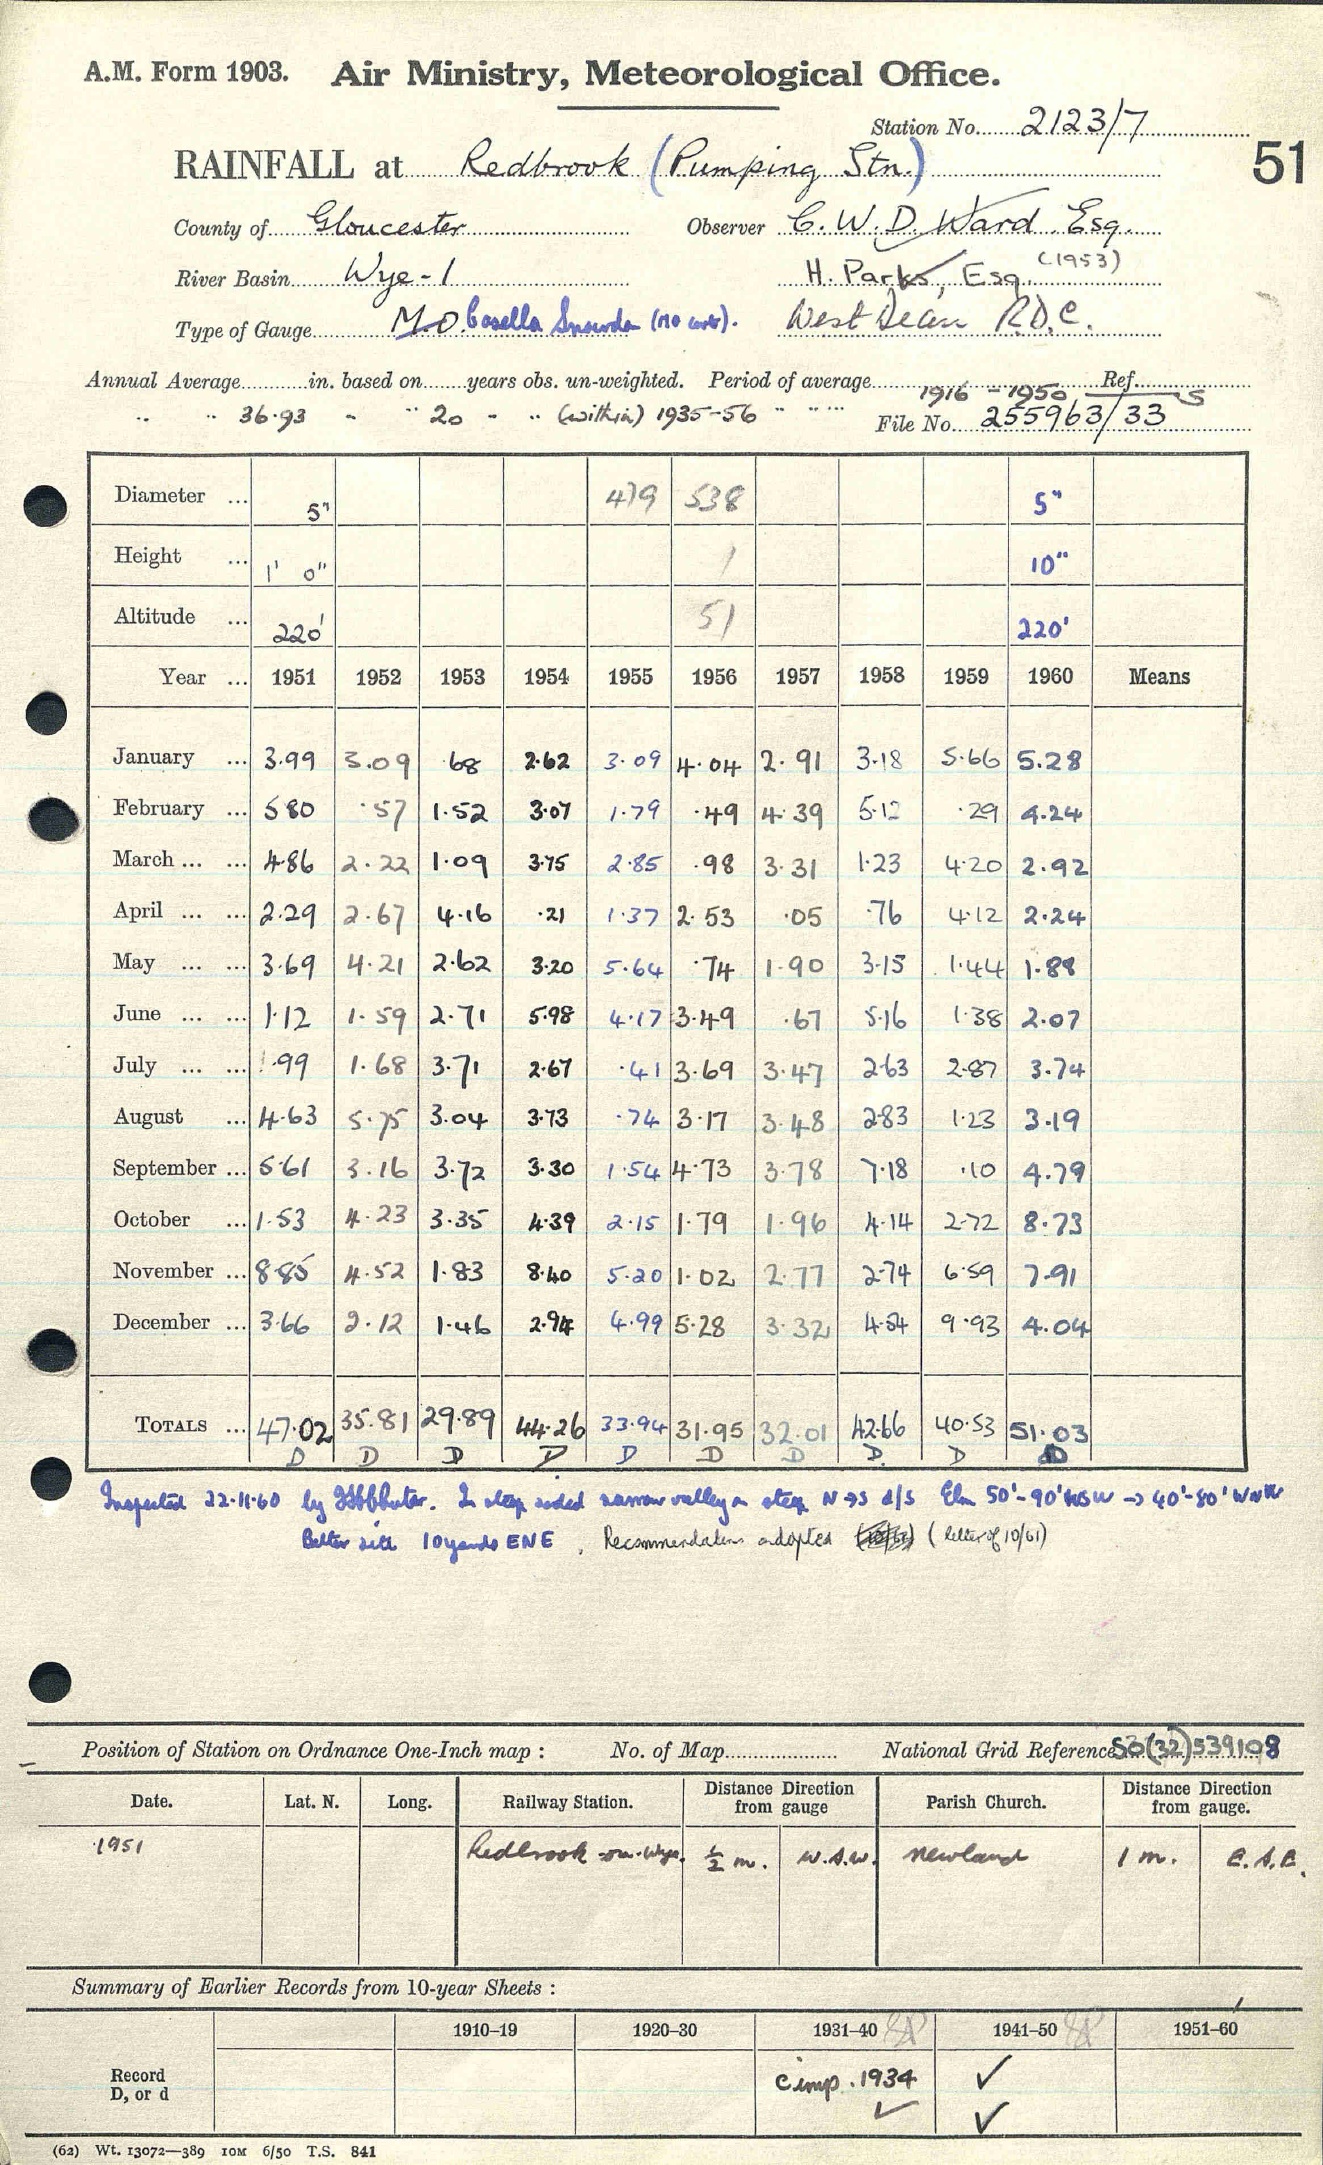 A.M. Form 1903. Air Ministry, Meteorological Office.
Station No. 2123/7
51
RAINFALL at Redbrook (Pumping Stn.)
County of Gloucester Observer C. W. D. Ward. Esq.
River Basin Wye-1 H. Parks, Esq. (1953)
Type of Gauge M.O. Casella Snowdon (MO cert). West Dean R.D.C.
Annual Average in. based on years obs. un-weighted. Period of average 1916-1950 Ref. S
" " 36.93 - " 20 - " (within) 1935-56 " " " " File No. 255963/33
Diameter ... 5" 479 538 5"
Height ... 1' 0" 1 10"
Altitude ... 220' 51 220'
Year ... 1951 1952 1953 1954 1955 1956 1957 1958 1959 1960 Means
January ... 3.99 3.09 .68 2.62 3.09 4.04 2.91 3.18 5.66 5.28
February ... 5 80 .57 1.52 3.07 1.79 .49 4.39 5.12 .29 4.24
March ... ... 4.86 2.22 1.09 3.75 2.85 .98 3.31 1.23 4.20 2.92
April ... ... 2.29 2.67 4.16 .21 1.37 2.53 .05 .76 4.12 2.24
May ... ... 3.69 4.21 2.62 3.20 5.64 .74 1.90 3.15 1.44 1.88
June ... ... 1.12 1.59 2.71 5.98 4.17 3.49 .67 5.16 1.38 2.07
July ... ... .99 1.68 3.71 2.67 .41 3.69 3.47 2.63 2.87 3.74
August ... 4.63 5.75 3.04 3.73 .74 3.17 3.48 2.83 1.23 3.19
September ... 5.61 3.16 3.72 3.30 1.54 4.73 3.78 7.18 .10 4.79
October ... 1.53 4.23 3.35 4.39 2.15 1.79 1.96 4.14 2.72 8.73
November ... 8.85 4.52 1.83 8.40 5.20 1.02 2.77 2.74 6.59 7.91
December ... 3.66 2.12 1.46 2.94 4.99 5.28 3.32 4.54 9.93 4.04
TOTALS ... 47.02 35.81 29.89 44.26 33.94 31.95 32.01 42.66 40.53 51.03
D D D D D D D D D D
Inspected 22.11.60 by In steep sided narrow valley on steep N→S d/s Elm 50'-90' WSW → 40'-80' WNW
Better site 10 yards ENE, Recommendation adopted (letter of 10/61)
Position of Station on Ordnance One-Inch map : No. of Map National Grid Reference SO(32)539108
Date. Lat. N. Long. Railway Station. Distance Direction from gauge Parish Church. Distance Direction from gauge.
1951 Redbrook-on-Wye. ½ m. W.S.W. Newland 1 m. E.S.E.
Summary of Earlier Records from 10-year Sheets :
1910–19 1920–30 1931–40 1941–50 1951–60
Record D, or d C imp. 1934 ✓ ✓ ✓
(62) Wt. 13072—389 10M 6/50 T.S. 841